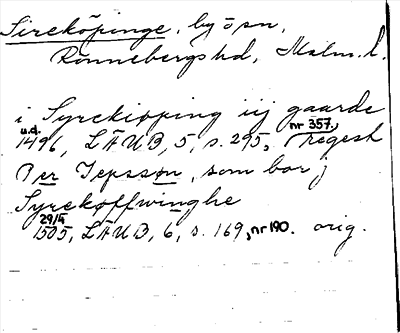 Sireköpinge, by o sn,
Rönnebergs hd, Malm. l.
i Syrekiøping iij gaarde
u.d. 1496, LÄUB, 5, s. 295, nr 357, regest
Per Jepsson, som bor j
Syrekøffwinghe
29/4 1505, LÄUB, 6, s. 169, nr 190. orig.